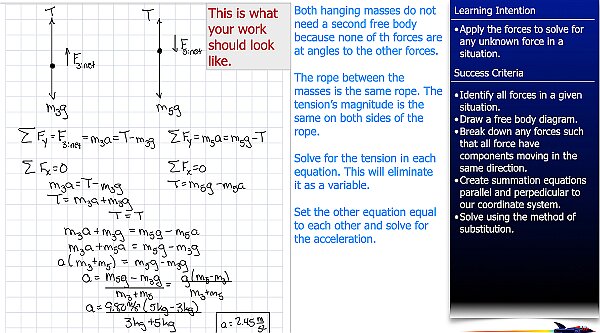 T
T
↑F3:net
↓F5:net
m₃g
m₅g
∑Fy=F3:net=m₃a=T-m₃g
∑Fy=m₅a=m₅g-T
∑Fx=0
∑Fx=0
m₃a=T-m₃g
T=m₅g-m₅a
T=m₃a+m₃g
T=T
m₃a+m₃g=m₅g-m₅a
m₃a+m₅a=m₅g-m₃g
a(m₃+m₅)=m₅g-m₃g
a=m₅g-m₃g/m₃+m₅=g(m₅-m₃)/m₃+m₅
a=9.80m/s²(5kg-3kg)/3kg+5kg
a=2.45m/s²
This is what
your work
should look
like.
Both hanging masses do not
need a second free body
because none of th forces are
at angles to the other forces.
The rope between the
masses is the same rope. The
tension's magnitude is the
same on both sides of the
rope.
Solve for the tension in each
equation. This will eliminate
it as a variable.
Set the other equation equal
to each other and solve for
the acceleration.
Learning Intention
•Apply the forces to solve for
any unknown force in a
situation.
Success Criteria
•Identify all forces in a given
situation.
•Draw a free body diagram.
•Break down any forces such
that all force have
components moving in the
same direction.
•Create summation equations
parallel and perpedicular to
our coordinate system.
•Solve using the method of
substitution.